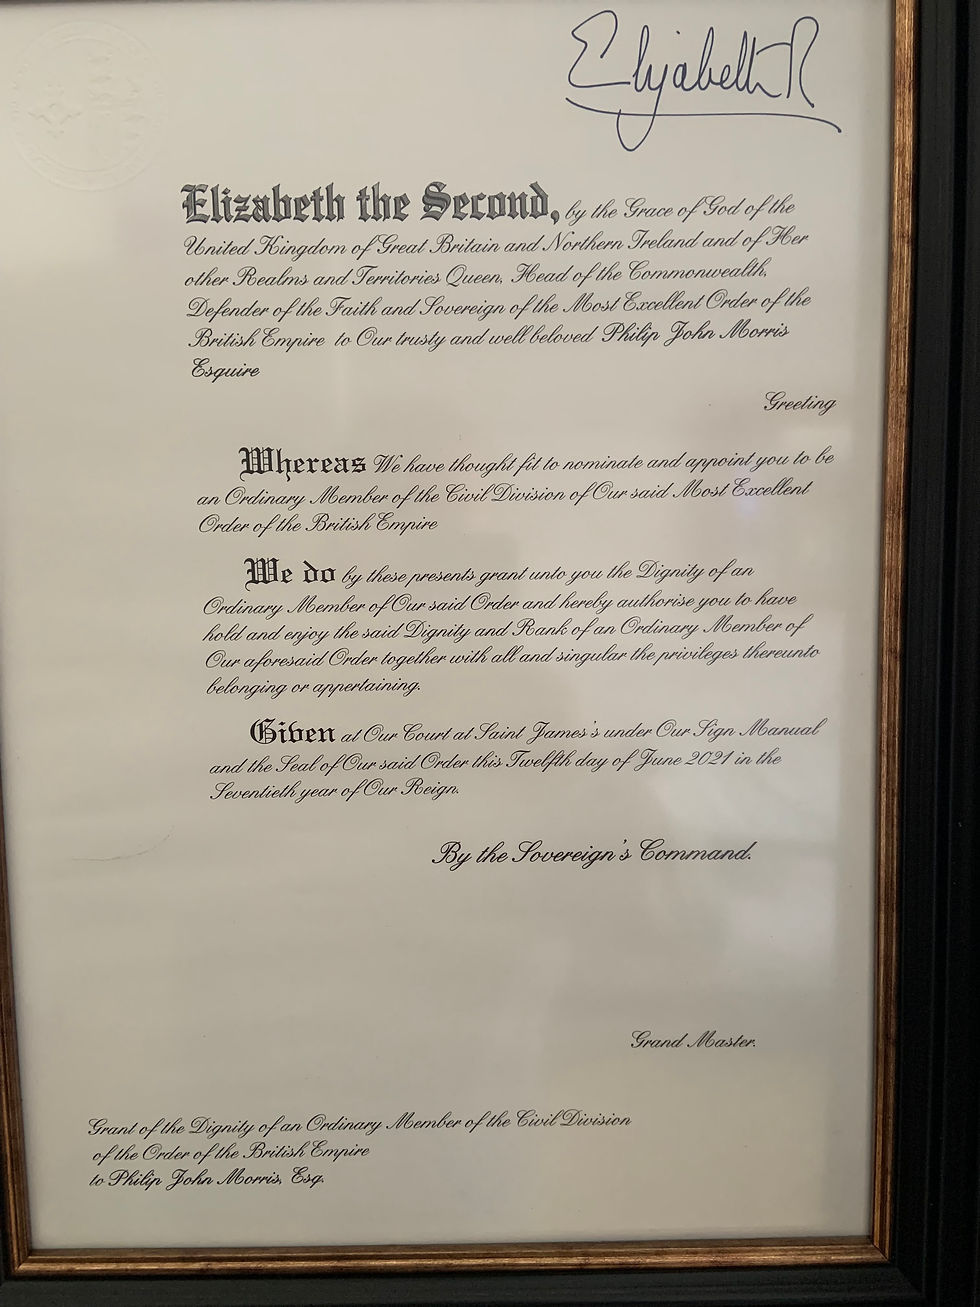 Elizabeth R
Elizabeth the Second, by the Grace of God of the
United Kingdom of Great Britain and Northern Ireland and of Her
other Realms and Territories Queen, Head of the Commonwealth,
Defender of the Faith and Sovereign of the Most Excellent Order of the
British Empire to Our trusty and well beloved Philip John Morris
Esquire
Greeting
Whereas We have thought fit to nominate and appoint you to be
an Ordinary Member of the Civil Division of Our said Most Excellent
Order of the British Empire
We do by these presents grant unto you the Dignity of an
Ordinary Member of Our said Order and hereby authorise you to have
hold and enjoy the said Dignity and Rank of an Ordinary Member of
Our aforesaid Order together with all and singular the privileges thereunto
belonging or appertaining.
Given at Our Court at Saint James's under Our Sign Manual
and the Seal of Our said Order this Twelfth day of June 2021 in the
Seventieth year of Our Reign.
By the Sovereign's Command.
Grand Master.
Grant of the Dignity of an Ordinary Member of the Civil Division
of the Order of the British Empire
to Philip John Morris, Esq.